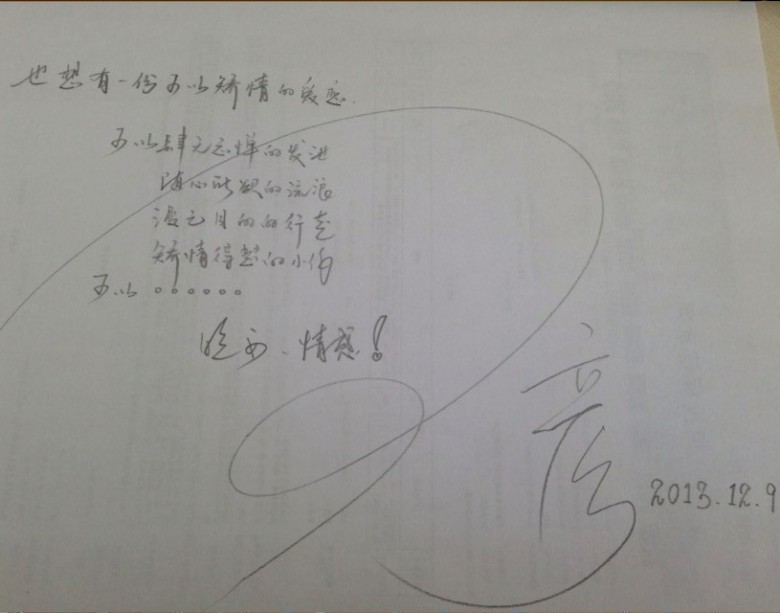 也想有一份可以矫情的爱恋.
可以肆无忌惮的发泄
随心所欲的流浪
漫无目的的行走
矫情待愁的小伤
可以。。。。。。
晚安、情感!
彦
2013.12.9